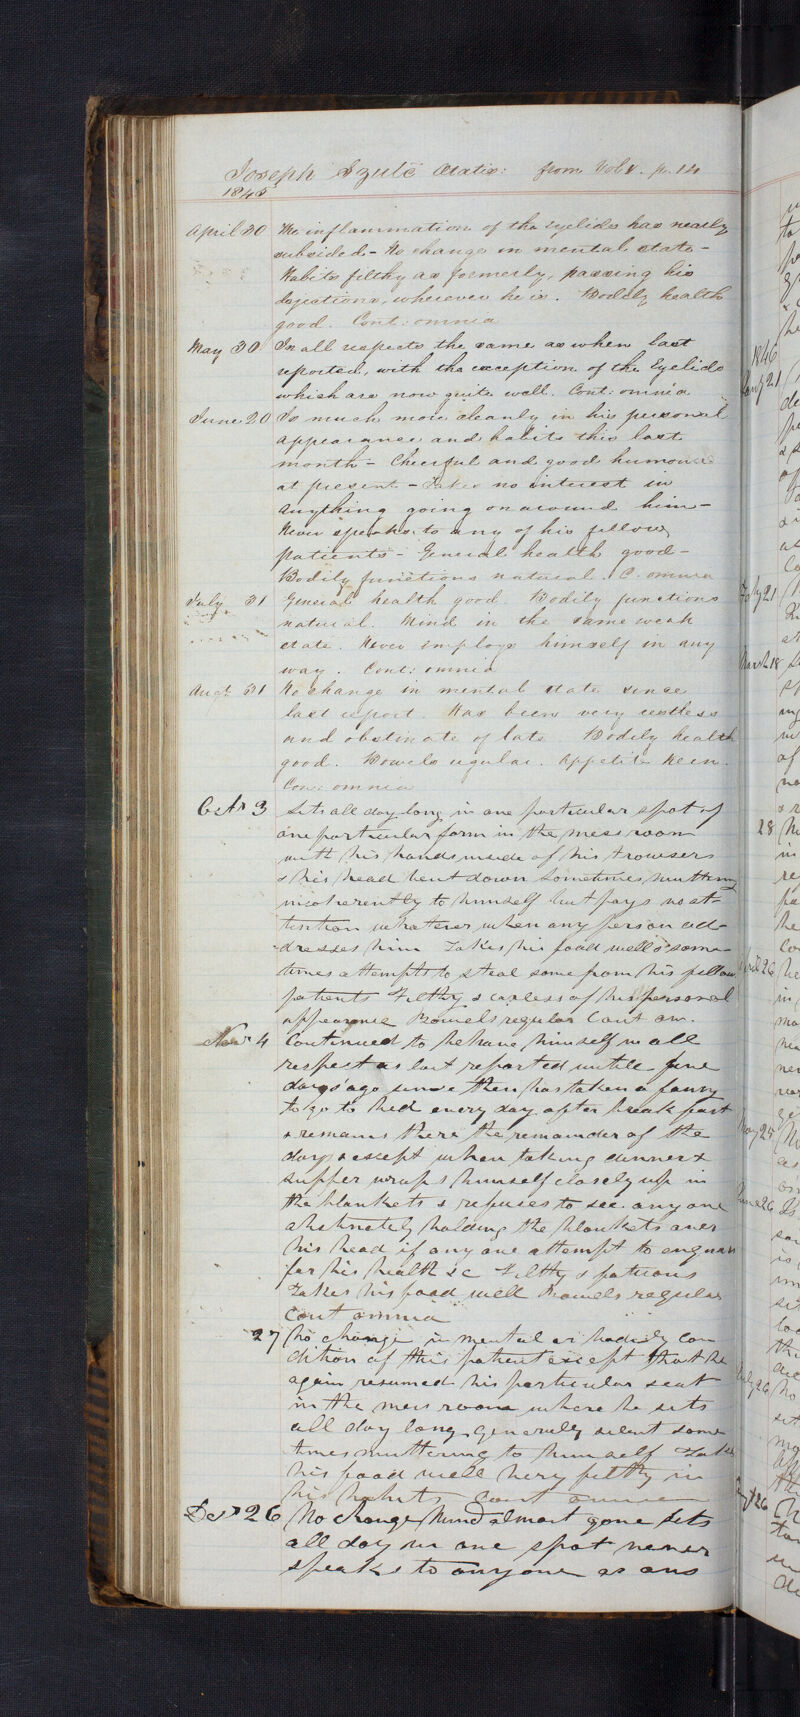 Joseph Szulc Aetatis: from Vol V. p. 14
1845
April 30 The inflammation of the eyelids has nearly
subsided - No change in mental state -
Habits filthy as formerly, passing his
dejections, wherever he is. Bodily health
good. Cont: omnia
May 30 In all respects the same as when last
reported, with the exception of the Eyelids
which are now quite well. Cont: omnia
June 20 Is much more cleanly in his personal
appearance and habits this last
month - Cheerful and good humoured
at present - Takes no interest in
anything going on around him -
Never speaks to any of his fellow
patients - General health good -
Bodily functions natural. C. omnia
July 31 General health good. Bodily functions
natural. Mind in the same weak
state. Never employs himself in any
way. Cont: omnia
Augt 31 No change in mental state since
last report. Has been very restless
and obstinate of late. Bodily health
good. Bowels regular. Appetite keen.
Con: omnia
Octr 3 Sits all day long in one particular spot of
one particular form in the mess room
with his hands inside of his trowsers
& his head bent down Sometimes muttering
incoherently to himself but pays no at-
tention whatever when any person ad-
dresses him Takes his food well & some-
times attempts to steal some from his fellow
patients Filthy & careless of his personal
appearance Bowels regular Cont om.
Novr 4 Continued to behave himself in all
respect as last reported untill five
days ago since then has taken a fancy
to go to bed every day after breakfast
& remains there the remainder of the
day & except when taking dinner &
supper wraps himself closely up in
the blankets & refuses to see any one
obstinately holding the blankets over
his head if any one attempt to enquire
for his health &c Filthy & fatuous
Takes his food well Bowels regular
Cont omnia
27 No change in mental or bodily con
dition of this patient except that he
again resumed his particular seat
in the mess room where he sits
all day long generally silent some
times muttering to himself Takes
his food well very filthy in
his habits Cont omnia
Decr 26 No change Mind almost gone Sits
all day in one spot never
speaks to anyone or ans
1846
Jany 21
Feby 21
March 18
28
April 26
May 25
June 26
July 26